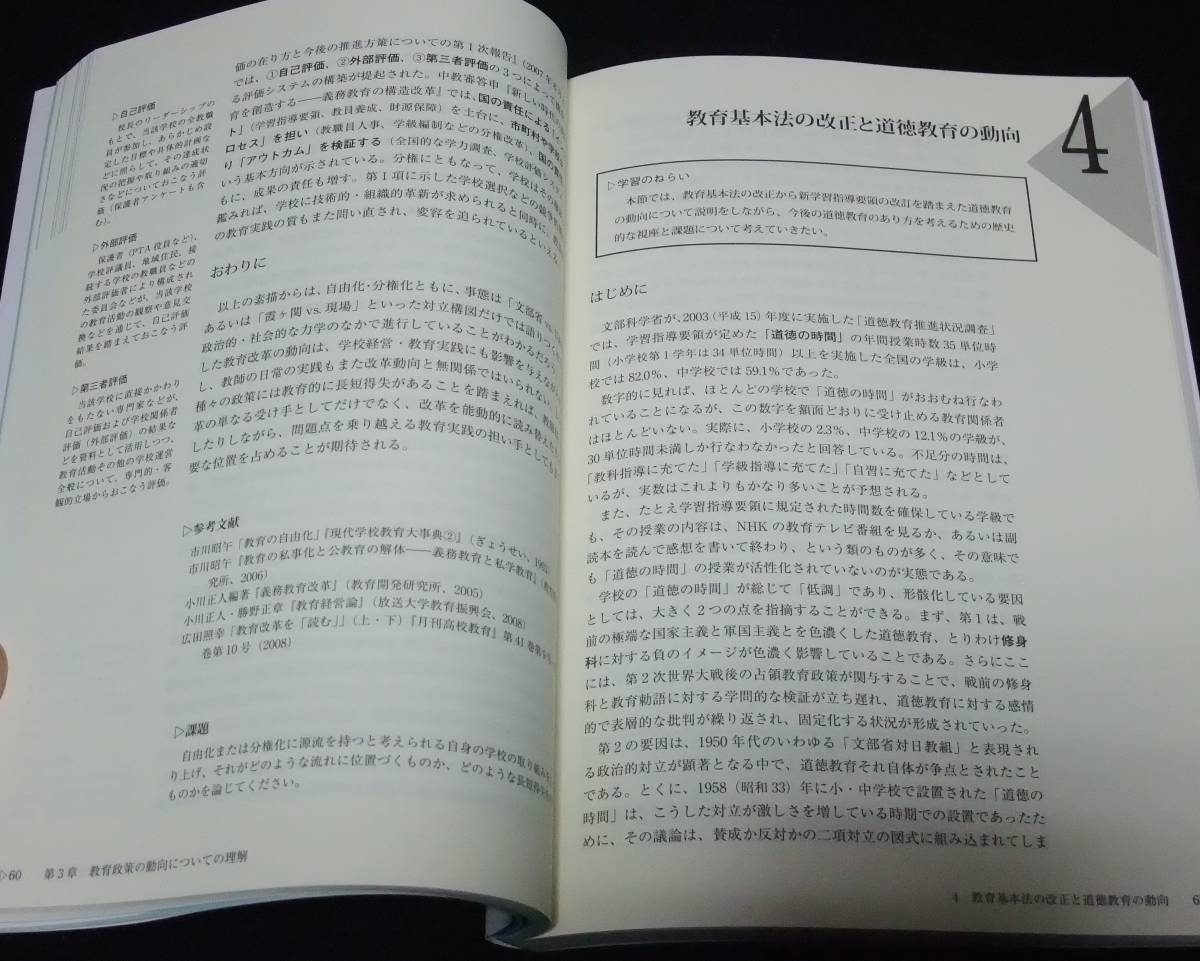 ▷自己評価
校長のリーダーシップの
もとで、当該学校の全教職
員が参加し、あらかじめ設
定した目標や具体的計画な
どに照らして、その達成状
況の把握や取り組みの適切
さなどについておこなう評
価（保護者アンケートも含
む）。
▷外部評価
保護者（PTA役員など）、
学校評議員、地域住民、接
続する学校の教職員などの
外部評価者により構成され
た委員会などが、当該学校
の教育活動の観察や意見交
換などを通じて、自己評価
結果を踏まえておこなう評
価。
▷第三者評価
当該学校に直接かかわり
をもたない専門家などが、
自己評価および学校関係者
評価（外部評価）の結果な
どを資料として活用しつつ、
教育活動その他の学校運営
全般について、専門的・客
観的立場からおこなう評価。
価の在り方と今後の推進方策についての第1次報告』（2007年
では、①自己評価、②外部評価、③第三者評価の3つによって
る評価システムの構築が提起された。中教審答申『新しい時代の
育を創造する――義務教育の構造改革』では、国の責任による
ト」（学習指導要領、教員養成、財源保障）を土台に、市町村や学校
ロセス」を担い（教職員人事、学級編制などの分権改革）、国の
り「アウトカム」を検証する（全国的な学力調査、学校評価システ
いう基本方向が示されている。分権にともなって、学校はその
もに、成果の責任も増す。第1項に示した学校選択などの競争
鑑みれば、学校に技術的・組織的革新が求められると同時に、
の教育実践の質もまた問い直され、変容を迫られているといえる。
おわりに
以上の素描からは、自由化・分権化ともに、事態は「文部省 vs.
あるいは「霞ヶ関 vs. 現場」といった対立構図だけでは語りつく
政治的・社会的な力学のなかで進行していることがわかるだろう。
した教育改革の動向は、学校経営・教育実践にも影響を与えなが
し、教師の日常の実践もまた改革動向と無関係ではいられない。
種々の政策には教育的に長短得失があることを踏まえれば、教職
革の単なる受け手としてだけでなく、改革を能動的に読み替えた
したりしながら、問題点を乗り越える教育実践の担い手としても
要な位置を占めることが期待される。
▷参考文献
市川昭午「教育の自由化」『現代学校教育大事典②』（ぎょうせい、1993）
市川昭午『教育の私事化と公教育の解体――義務教育と私学教育』（教育
究所、2006）
小川正人編著『義務教育改革』（教育開発研究所、2005）
小川正人・勝野正章『教育経営論』（放送大学教育振興会、2008）
広田照幸「教育改革を「読む」」（上・下）『月刊高校教育』第41巻第9号、
巻第10号（2008）
▷課題
自由化または分権化に源流を持つと考えられる自身の学校の取り組みを
り上げ、それがどのような流れに位置づくものか、どのような長短得失
ものかを論じてください。
▷60 第3章 教育政策の動向についての理解
4
教育基本法の改正と道徳教育の動向
▷学習のねらい
本節では、教育基本法の改正から新学習指導要領の改訂を踏まえた道徳教育
の動向について説明をしながら、今後の道徳教育のあり方を考えるための歴史
的な視座と課題について考えていきたい。
はじめに
文部科学省が、2003（平成15）年度に実施した「道徳教育推進状況調査」
では、学習指導要領が定めた「道徳の時間」の年間授業時数35単位時
間（小学校第1学年は34単位時間）以上を実施した全国の学級は、小学
校では82.0%、中学校では59.1%であった。
数字的に見れば、ほとんどの学校で「道徳の時間」がおおむね行なわ
れていることになるが、この数字を額面どおりに受け止める教育関係者
はほとんどいない。実際に、小学校の2.3%、中学校の12.1%の学級が、
30単位時間未満しか行なわなかったと回答している。不足分の時間は、
「教科指導に充てた」「学級指導に充てた」「自習に充てた」などとして
いるが、実数はこれよりもかなり多いことが予想される。
また、たとえ学習指導要領に規定された時間数を確保している学級で
も、その授業の内容は、NHKの教育テレビ番組を見るか、あるいは副
読本を読んで感想を書いて終わり、という類のものが多く、その意味で
も「道徳の時間」の授業が活性化されていないのが実態である。
学校の「道徳の時間」が総じて「低調」であり、形骸化している要因
としては、大きく2つの点を指摘することができる。まず、第1は、戦
前の極端な国家主義と軍国主義とを色濃くした道徳教育、とりわけ修身
科に対する負のイメージが色濃く影響していることである。さらにここ
には、第2次世界大戦後の占領教育政策が関与することで、戦前の修身
科と教育勅語に対する学問的な検証が立ち遅れ、道徳教育に対する感情
的で表層的な批判が繰り返され、固定化する状況が形成されていった。
第2の要因は、1950年代のいわゆる「文部省対日教組」と表現され
る政治的対立が顕著となる中で、道徳教育それ自体が争点とされたこと
である。とくに、1958（昭和33）年に小・中学校で設置された「道徳の
時間」は、こうした対立が激しさを増している時期での設置であったた
めに、その議論は、賛成か反対かの二項対立の図式に組み込まれてしま
4 教育基本法の改正と道徳教育の動向 6